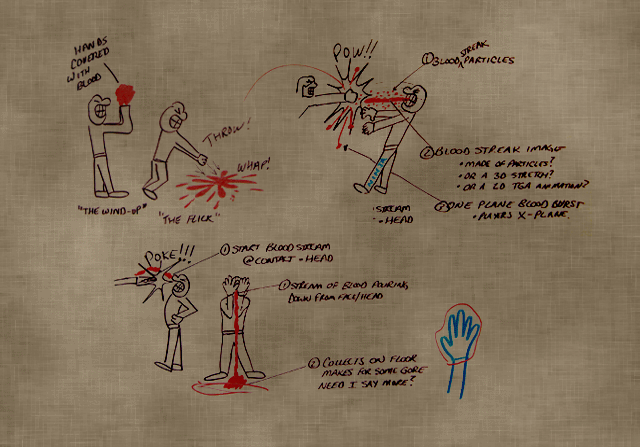 HANDS
COVERED
WITH
BLOOD
"THE WIND-UP"
"THE FLICK"
THROW!
WHAP!
POW!!
① BLOOD STREAK PARTICLES
② BLOOD STREAK IMAGE
• MADE OF PARTICLES?
• OR A 3D STRETCH?
• OR A 2D TGA ANIMATION?
ONE PLANE BLOOD BURST
• PLAYERS X-PLANE.
NINJA
STREAM
HEAD
POKE!!!
① START BLOOD STREAM
@ CONTACT - HEAD
① STREAM OF BLOOD POURING
DOWN FROM FACE/HEAD
② COLLECTS ON FLOOR
MAKES FOR SOME GORE
NEED I SAY MORE?